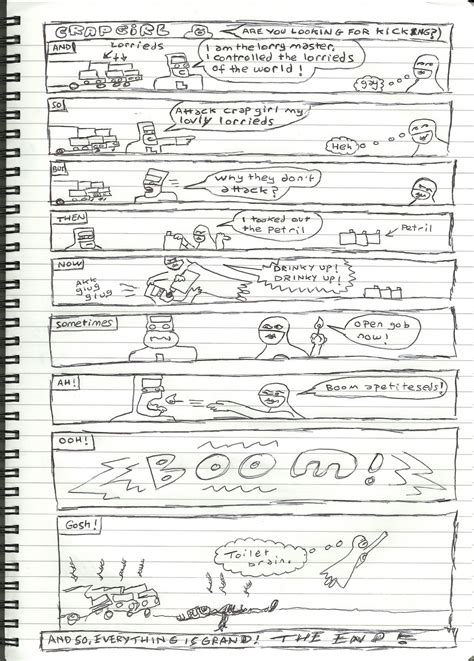 CRAPGIRL
ARE YOU LOOKING FOR KICKING?)
AND
Lorrieds
I am the lorry master,
I controlled the lorrieds
of the world!
gay?
SO
Attack crap girl my
lovly lorrieds
Heh
BUT
Why they don't
attack?
THEN
I tooked out
the Petril
Petril
NOW
Akk
glug
glug
DRINKY UP!
DRINKY UP!
sometimes
open gob
now!
AH!
Boom apetitesels!
OOH!
BOOM!
Gosh!
Toilet
brain.
AND SO, EVERYTHING IS GRAND! THE ENDE